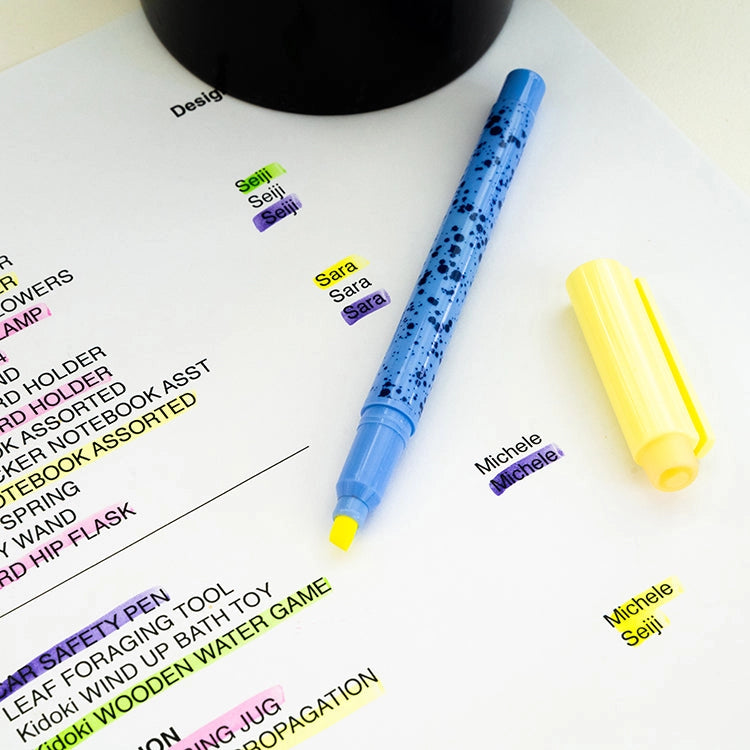 Desig
Seiji
Seiji
Seiji
Sara
Sara
Sara
OWERS
LAMP
RD HOLDER
RD HOLDER
OK ASSORTED
CKER NOTEBOOK ASST
OTEBOOK ASSORTED
SPRING
Y WAND
RD HIP FLASK
Michele
Michele
CAR SAFETY PEN
LEAF FORAGING TOOL
Kidoki WIND UP BATH TOY
Kidoki WOODEN WATER GAME
Michele
Seiji
ION
ING JUG
PROPAGATION